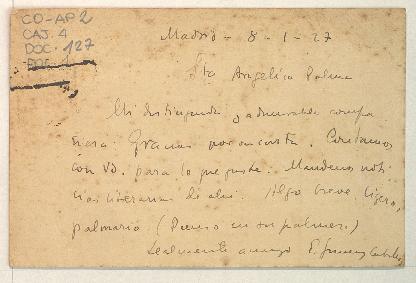 CO-AP2
CAJ. 4
DOC. 127
DOC. 
Madrid - 8 - 1 - 27
Srta Angélica Palma
Mi distinguida y admirable compa
ñera: Gracias por su carta. Contamos
con Vd. para lo que guste. Mándenos noti
cias literarias de ahí. Algo breve, ligero,
palmario (Pienso en sus palmeras)
Lealmente amigo E. Giménez Caballero